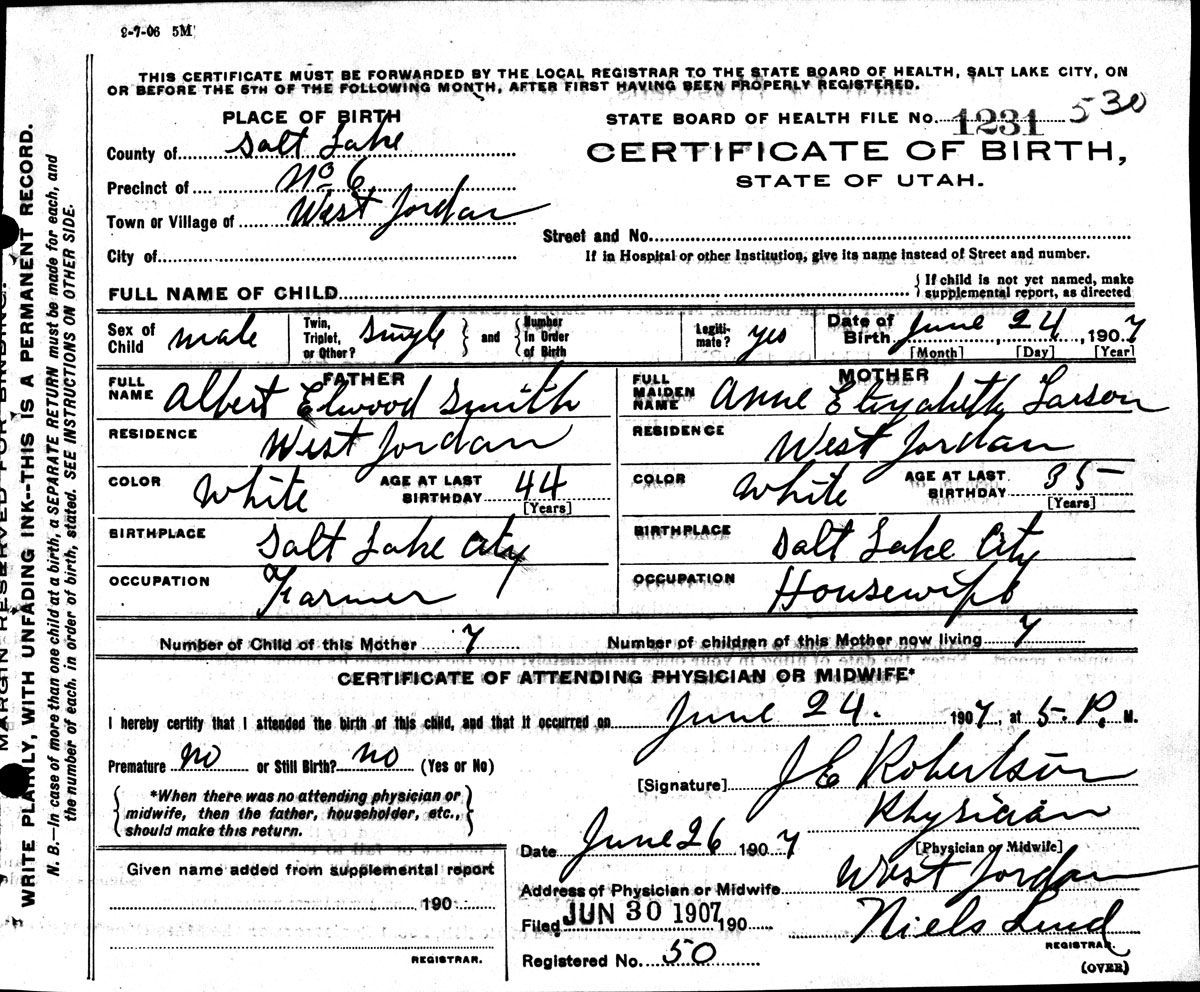 2-7-06 5M
THIS CERTIFICATE MUST BE FORWARDED BY THE LOCAL REGISTRAR TO THE STATE BOARD OF HEALTH, SALT LAKE CITY, ON
OR BEFORE THE 5TH OF THE FOLLOWING MONTH, AFTER FIRST HAVING BEEN PROPERLY REGISTERED.
PLACE OF BIRTH
STATE BOARD OF HEALTH FILE No. 1231 530
County of Salt Lake
CERTIFICATE OF BIRTH,
STATE OF UTAH.
Precinct of No 6
Town or Village of West Jordan
Street and No.
City of
If in Hospital or other Institution, give its name instead of Street and number.
FULL NAME OF CHILD
{ If child is not yet named, make
supplemental report, as directed
Sex of Child male
Twin, Triplet, or Other? single } and { Number in Order of Birth
Legiti-mate? yes
Date of Birth June 24, 1907
[Month] [Day] [Year]
FATHER
FULL NAME Albert Elwood Smith
RESIDENCE West Jordan
COLOR White AGE AT LAST BIRTHDAY 44
[Years]
BIRTHPLACE Salt Lake City
OCCUPATION Farmer
MOTHER
FULL MAIDEN NAME Anne Elizabeth Larson
RESIDENCE West Jordan
COLOR White AGE AT LAST BIRTHDAY 35
[Years]
BIRTHPLACE Salt Lake City
OCCUPATION Housewife
Number of Child of this Mother 7 Number of children of this Mother now living 7
CERTIFICATE OF ATTENDING PHYSICIAN OR MIDWIFE*
I hereby certify that I attended the birth of this child, and that it occurred on June 24. 1907, at 5. P. M.
Premature no or Still Birth? no (Yes or No)
[Signature] J E Robertson
{ *When there was no attending physician or
midwife, then the father, householder, etc.,
should make this return. }
Physician
[Physician or Midwife]
Date June 26 1907
Address of Physician or Midwife West Jordan
Given name added from supplemental report
190
REGISTRAR.
Filed JUN 30 1907 190 Niels Lind
REGISTRAR.
Registered No. 50
(OVER)
MARGIN RESERVED FOR BINDING.
WRITE PLAINLY, WITH UNFADING INK--THIS IS A PERMANENT RECORD.
N. B.—In case of more than one child at a birth, a SEPARATE RETURN must be made for each, and
the number of each, in order of birth, stated. SEE INSTRUCTIONS ON OTHER SIDE.